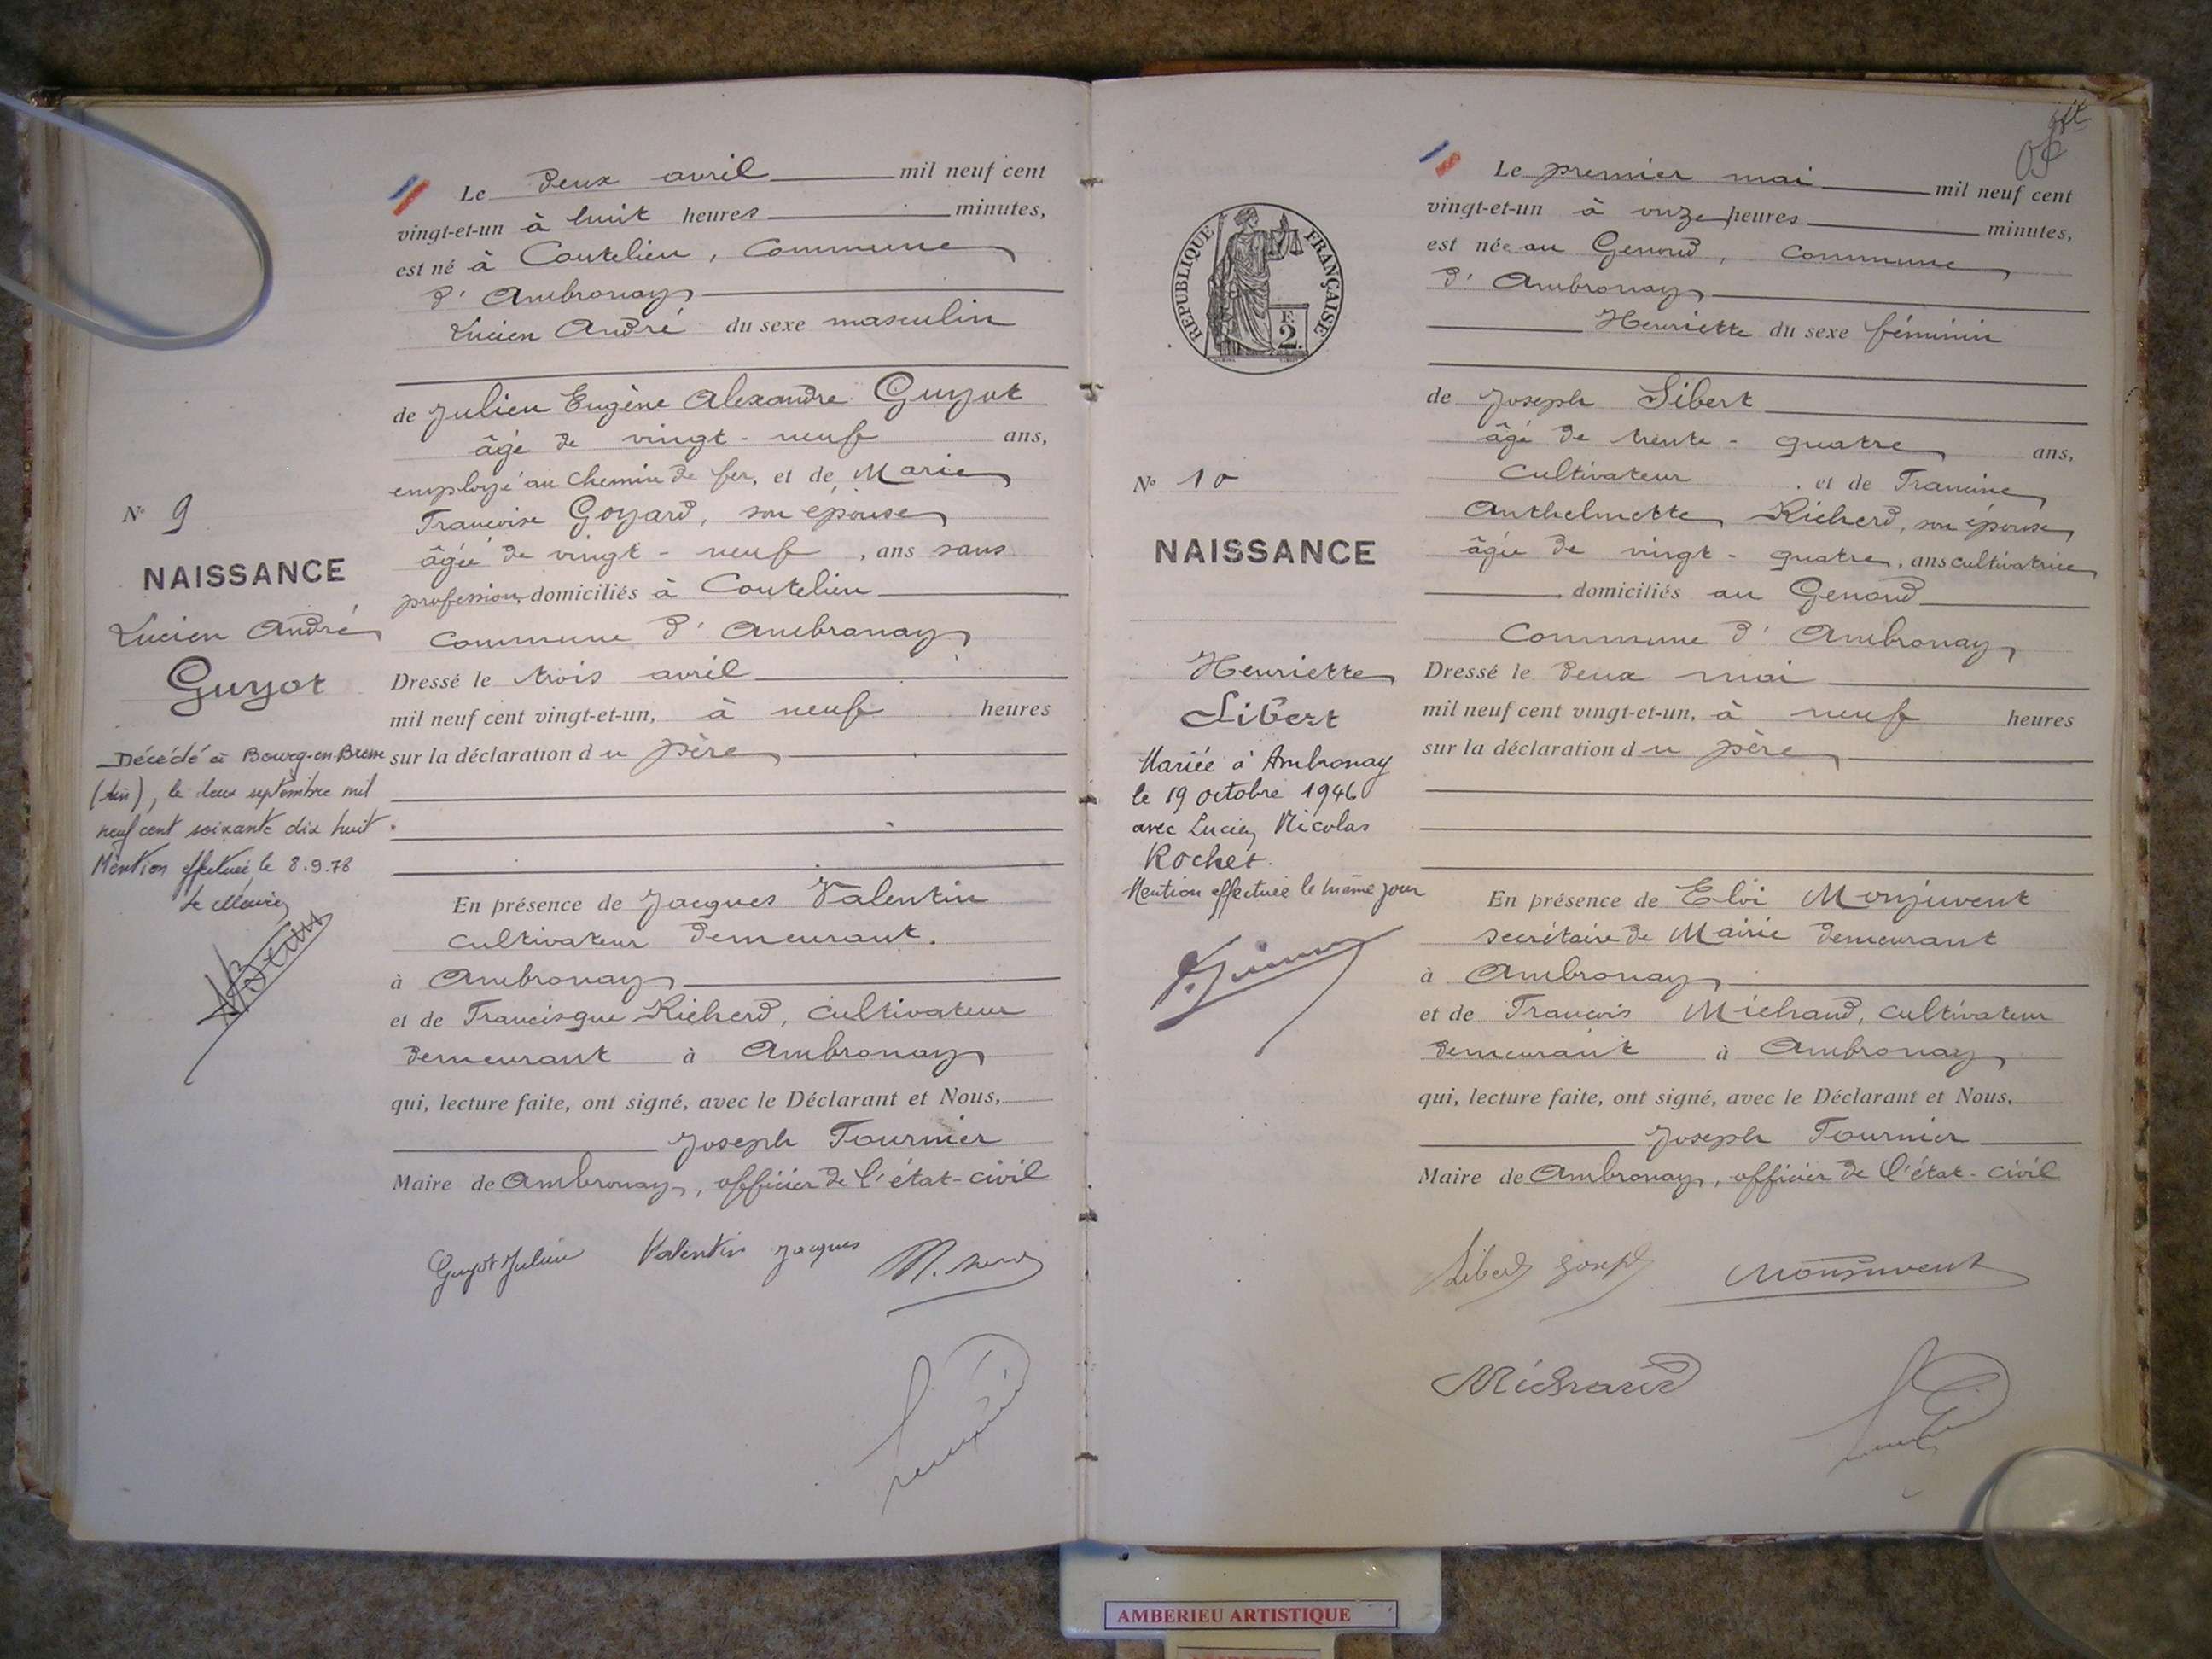 Le deux avril mil neuf cent
vingt-et-un à huit heures minutes,
est né à Coutelieu, Commune
d'Ambronay
Lucien André du sexe masculin
de Julien Eugène Alexandre Guyot
âgé de vingt-neuf ans,
employé au chemin de fer, et de Marie
Françoise Goyard, son épouse
âgée de vingt-neuf, ans sans
profession, domiciliés à Coutelieu
Commune d'Ambronay
Dressé le trois avril
mil neuf cent vingt-et-un, à neuf heures
sur la déclaration du père
En présence de Jacques Valentin
cultivateur demeurant.
à Ambronay
et de Francisque Richerd, cultivateur
demeurant à Ambronay
qui, lecture faite, ont signé, avec le Déclarant et Nous,
Joseph Tournier
Maire de Ambronay, officier de l'état-civil
Guyot Julien Valentin Jacques
No 9
NAISSANCE
Lucien André
Guyot
Décédé à Bourg-en-Bresse
(Ain), le deux septembre mil
neuf cent soixante dix huit.
Mention effectuée le 8.9.78
Le Maire
RÉPUBLIQUE FRANÇAISE
F.
2
No 10
NAISSANCE
Henriette
Sibert
Mariée à Ambronay
le 19 octobre 1946
avec Lucien Nicolas
Rochet.
Mention effectuée le même jour
Le premier mai mil neuf cent
vingt-et-un à onze heures minutes,
est née au Genoud, Commune
d'Ambronay
Henriette du sexe féminin
de Joseph Sibert
âgé de trente-quatre ans,
Cultivateur, et de Francine
Anthelmette Richerd, son épouse
âgée de vingt-quatre, ans cultivatrice
domiciliés au Genoud
Commune d'Ambronay
Dressé le deux mai
mil neuf cent vingt-et-un, à neuf heures
sur la déclaration du père
En présence de Eloi Monjuvent
secrétaire de Mairie demeurant
à Ambronay
et de François Michaud, cultivateur
demeurant à Ambronay
qui, lecture faite, ont signé, avec le Déclarant et Nous,
Joseph Tournier
Maire de Ambronay, officier de l'état-civil
Sibert Joseph Monjuvent
Michaud
AMBERIEU ARTISTIQUE